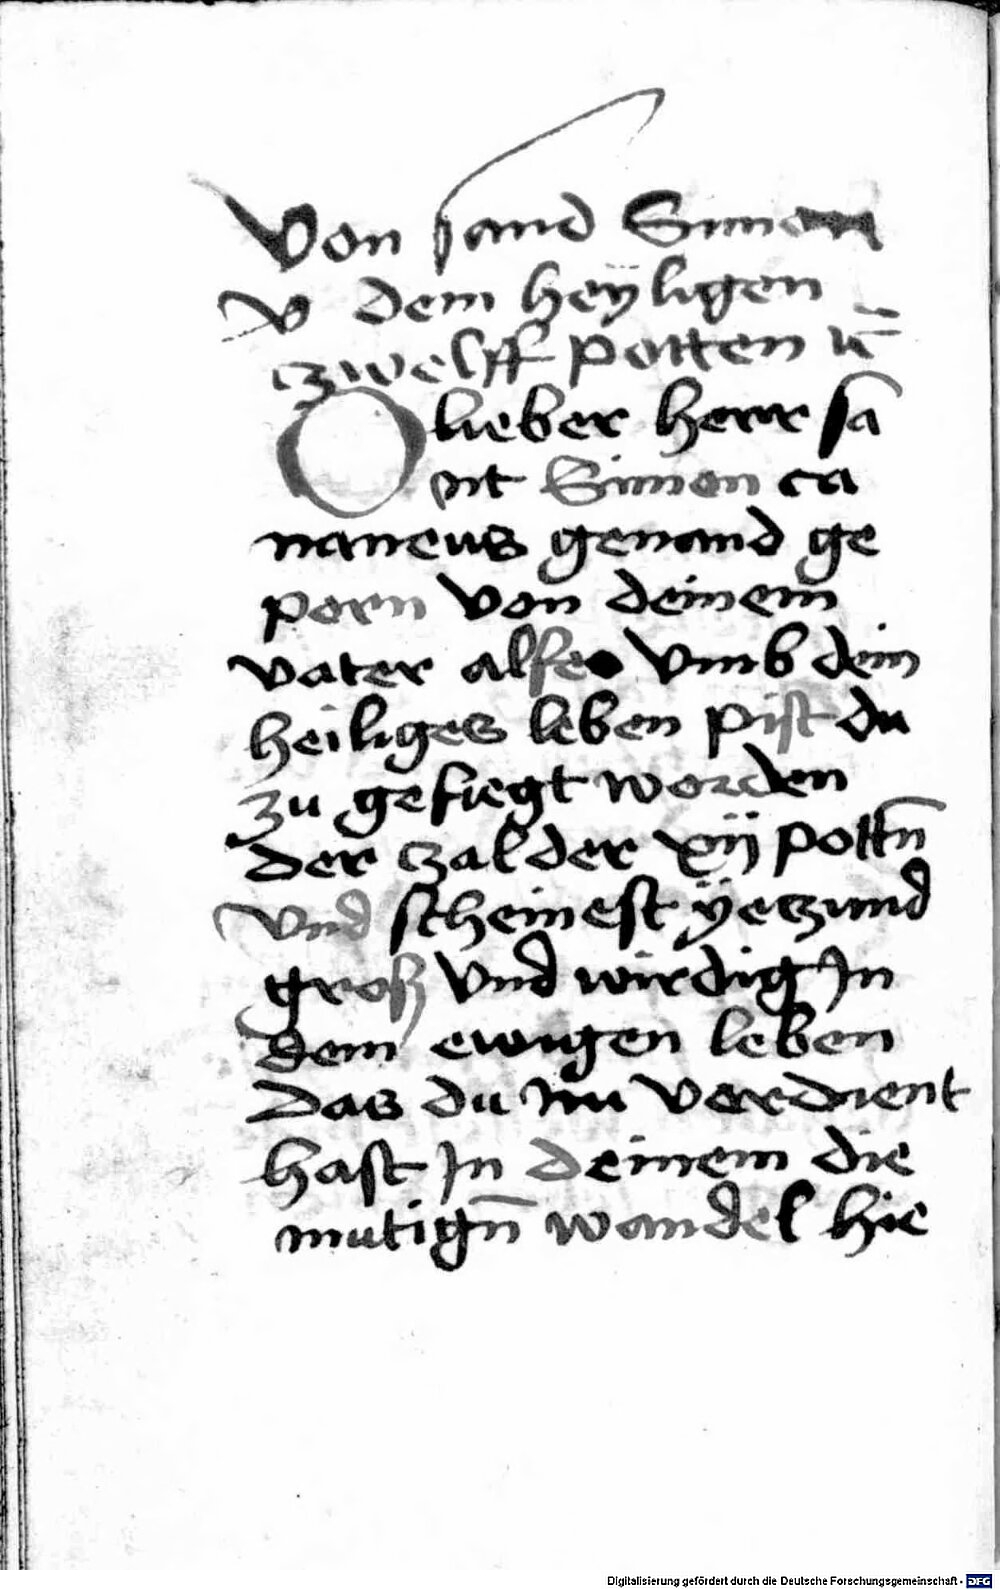 Von sand Simon
v dem heyligen
czwelff potten
O lieber herr sa
nt Simon ca
naneus genand ge
porn von deinem
vater alfeo vmb dein
heiliges leben pist du
zu gefuegt worden
der czal der xij pottn̄
vnd scheinest yeczund
grosz vnd wirdig In
dem ewigen leben
das du nu verdient
hast In deinem die
mutign̄ wandel hie
Digitalisierung gefördert durch die Deutsche Forschungsgemeinschaft - DFG